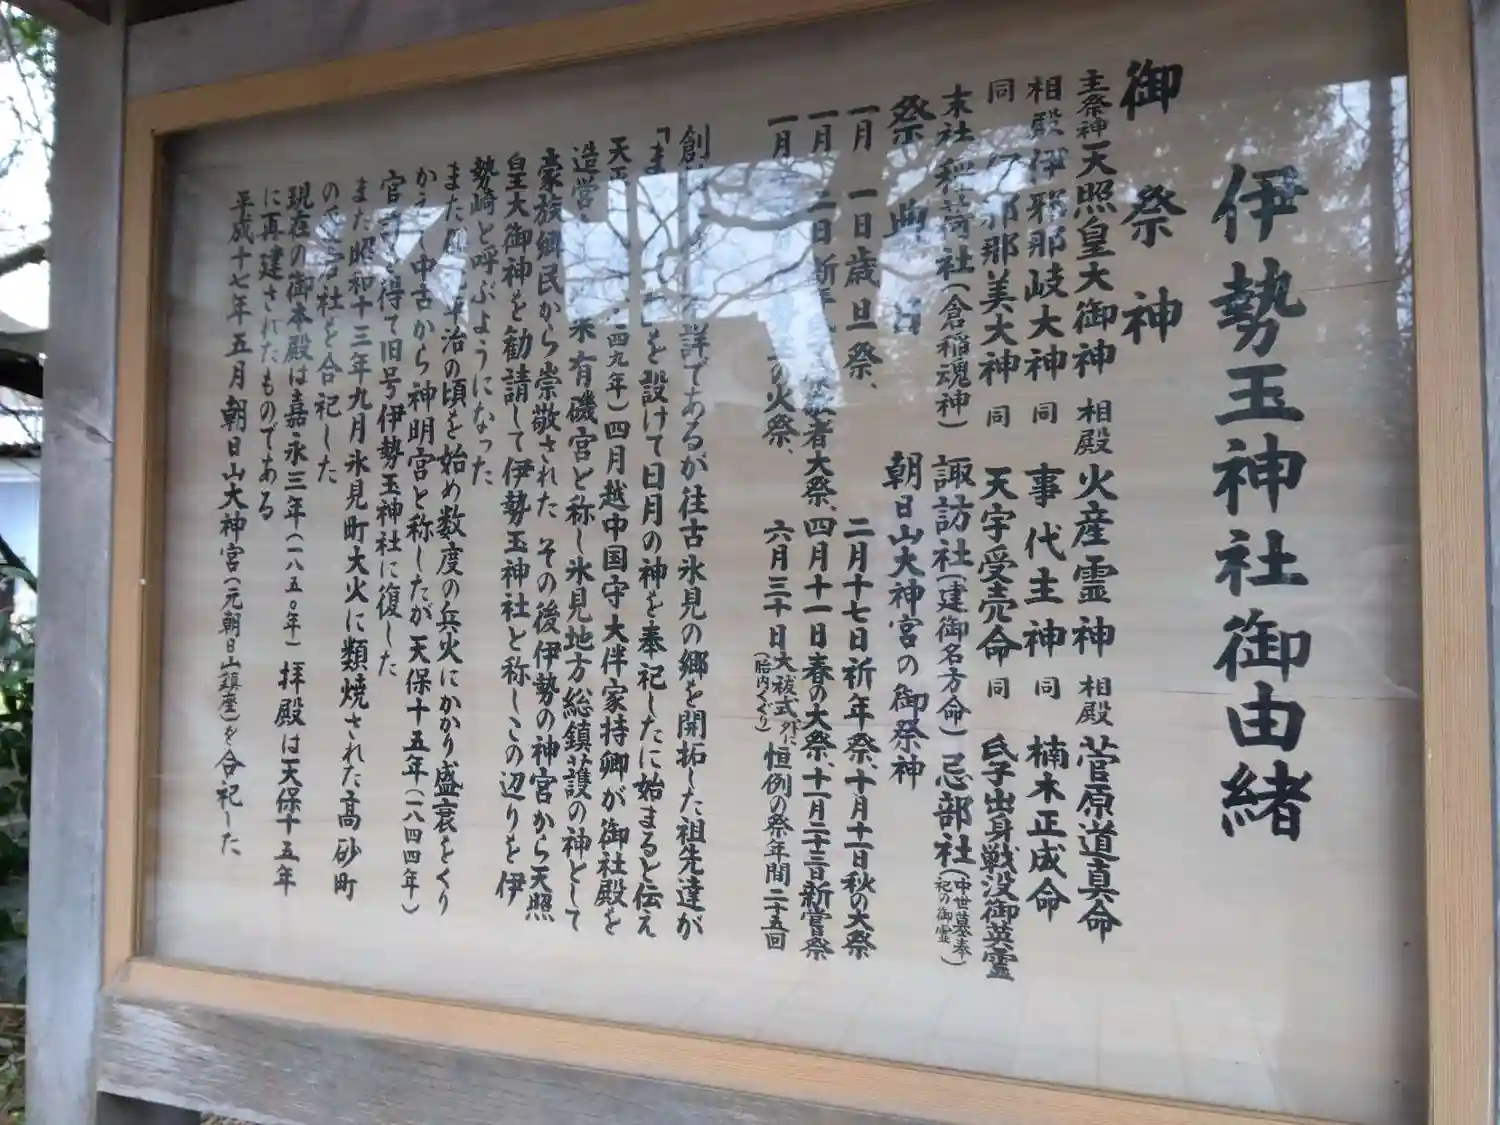 伊勢玉神社御由緒
御祭神
主祭神天照皇大御神 相殿 火産霊神 相殿 菅原道真命
相殿伊邪那岐大神 同 事代主神 同 楠木正成命
同 邪那美大神 同 天宇受売命 同 氏子出身戦没御英霊
末社 稲荷社(倉稲魂神) 諏訪社(建御名方命) 忌部社(中世墓奉祀の御霊)
朝日山大神宮の御祭神
祭典日
一月 一日歳旦祭、 二月十七日祈年祭、十月十一日秋の大祭
一月 二日新 者大祭、四月十一日春の大祭、十一月二十三日新嘗祭
一月 の火祭、 六月三十日大祓式(胎内くぐり)外に恒例の祭年間二十五回
創 詳であるが往古氷見の郷を開拓した祖先達が
「 」を設けて日月の神を奉祀したに始まると伝え
天 四九年)四月越中国守大伴家持卿が御社殿を
造営 来有磯宮と称し氷見地方総鎮護の神として
豪族郷民から崇敬された その後伊勢の神宮から天照
皇大御神を勧請して伊勢玉神社と称しこの辺りを伊
勢崎と呼ぶようになった
また 平治の頃を始め数度の兵火にかかり盛衰をくり
かえし中古から神明宮と称したが天保十五年(一八四四年)
官許を得て旧号伊勢玉神社に復した
また昭和十三年九月氷見町大火に類焼された高砂町
の 宮社を合祀した
現在の御本殿は嘉永三年(一八五〇年) 拝殿は天保十五年
に再建されたものである
平成十七年五月朝日山大神宮(元朝日山鎮座)を合祀した